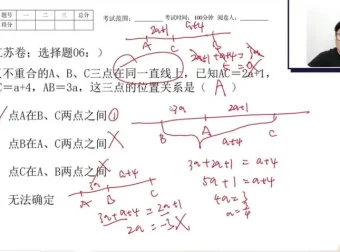 题号 一 二 三 总分
得分
考试范围：　　　　考试时间：100分钟 阅卷人：
2a+1 a+4
A C B
2a+1+a+4=3a
5=0 X
江苏卷；选择题06：）
不重合的A、B、C三点在同一直线上，已知AC＝2a+1，
C＝a+4，AB＝3a，这三点的位置关系是（ A ）
点A在B、C两点之间 ①
点B在A、C两点之间 X
点C在A、B两点之间 X
无法确定
3a 2a+1
B A C
a+4
3a+2a+1=a+4
5a+1=a+4
4a=3
a=3/4
3a a+4
A B C
3a+a+4=2a+1
2a=-3 X